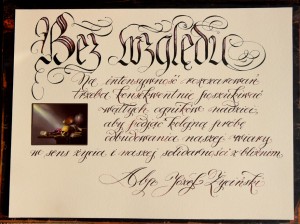 Bez względu
Na intensywność rozczarowań
trzeba konsekwentnie poszukiwać
wątłych ogników nadziei,
aby podjąć kolejną próbę
odbudowania naszej wiary
w sens życia i naszej solidarności z bliźnim.
Abp Józef Życiński